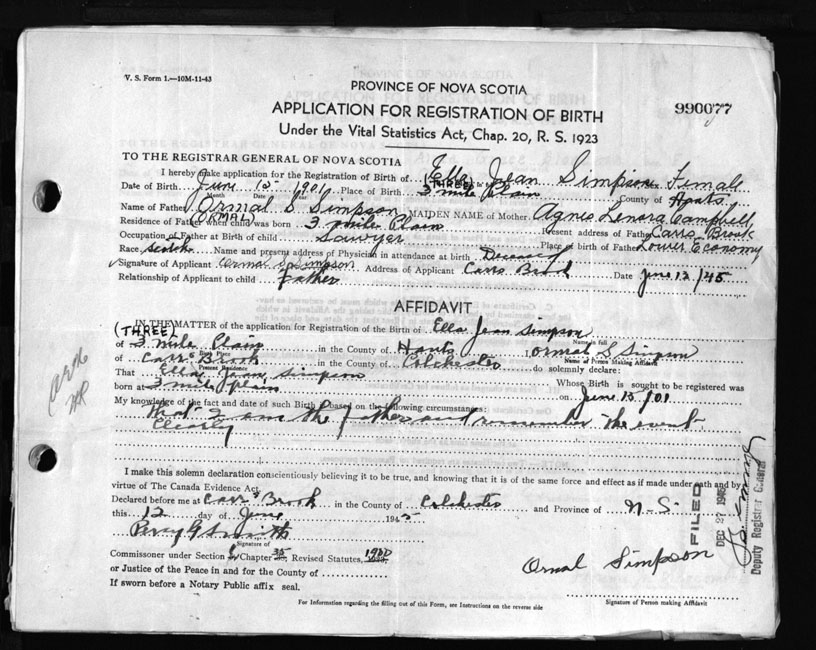 V. S. Form 1.—10M-11-43
PROVINCE OF NOVA SCOTIA
990077
APPLICATION FOR REGISTRATION OF BIRTH
Under the Vital Statistics Act, Chap. 20, R. S. 1923
TO THE REGISTRAR GENERAL OF NOVA SCOTIA
I hereby make application for the Registration of Birth of Ella Jean Simpson Female
Date of Birth June 13 1901 Place of Birth (THREE) 3 mile Plain County of Hants
Month Day Year
Name of Father Ormal S Simpson MAIDEN NAME of Mother Agnes Lenora Campbell
(ORMAL)
Residence of Father when child was born 3 mile Plain Present address of Father Carrs Brook
Occupation of Father at Birth of child Sawyer Place of birth of Father Lower Economy
Race Scotch Name and present address of Physician in attendance at birth Deceased
Signature of Applicant Ormal S Simpson Address of Applicant Carrs Brook Date June 12/45
Relationship of Applicant to child Father
AFFIDAVIT
IN THE MATTER of the application for Registration of the Birth of Ella Jean Simpson
(THREE)
Name in full
of 3 mile Plain in the County of Hants I, Ormal S Simpson
Birth Place
Name of Person Making Affidavit
of Carr's Brook in the County of Colchester do solemnly declare:
Present Residence
That Ella Jean Simpson Whose Birth is sought to be registered was
born at 3 mile plain on June 13/01
My knowledge of the fact and date of such Birth is based on the following circumstances:
that I am the father and remember the event
Clearly
I make this solemn declaration conscientiously believing it to be true, and knowing that it is of the same force and effect as if made under oath and by
virtue of The Canada Evidence Act.
Declared before me at Carr's Brook in the County of Colchester and Province of N-S-
this 12 day of June 1945
Percy G Smith
Signature of
Commissioner under Section Chapter 35, Revised Statutes, 1900
or Justice of the Peace in and for the County of
If sworn before a Notary Public affix seal.
Ormal Simpson
Signature of Person making Affidavit
For Information regarding the filling out of this Form, see Instructions on the reverse side
FILED
DEC 27 1945
Deputy Registrar General